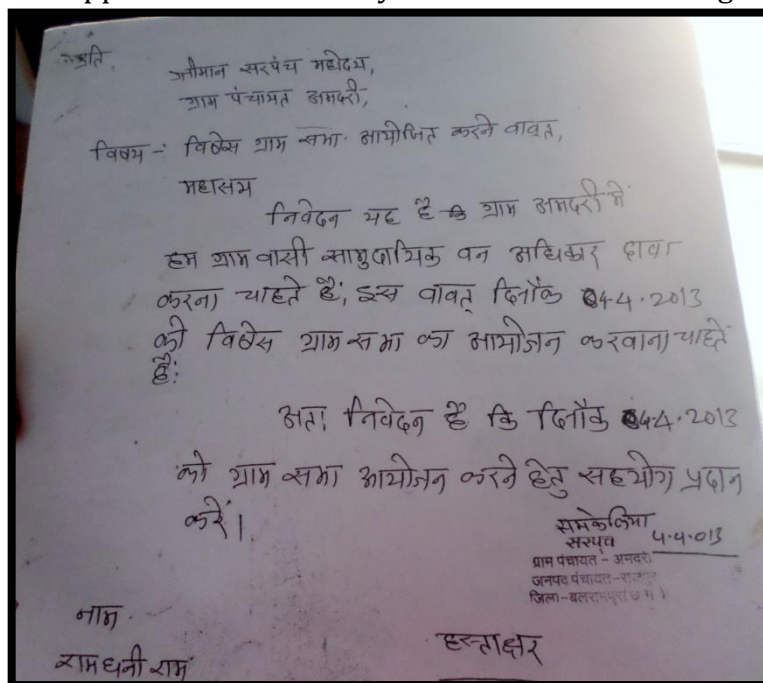 प्रति,
श्रीमान सरपंच महोदय,
ग्राम पंचायत अमदरी,
विषय - विशेस ग्राम सभा आयोजित करने वावत्,
महासय
निवेदन यह है कि ग्राम अमदरी में
हम ग्राम वासी सामुदायिक वन अधिकार दावा
करना चाहते हैं, इस वावत् दिनाँक 04-4-2013
को विशेस ग्राम सभा का आयोजन करवाना चाहते
हैं:
अतः निवेदन है कि दिनाँक 04-4-2013
को ग्राम सभा आयोजन करने हेतु सहयोग प्रदान
करें।
सरपंच 4-4-013
ग्राम पंचायत - अमदरी
जनपद पंचायत-राजपुर
जिला-बलरामपुर
नाम
हस्ताक्षर
रामधनी राम